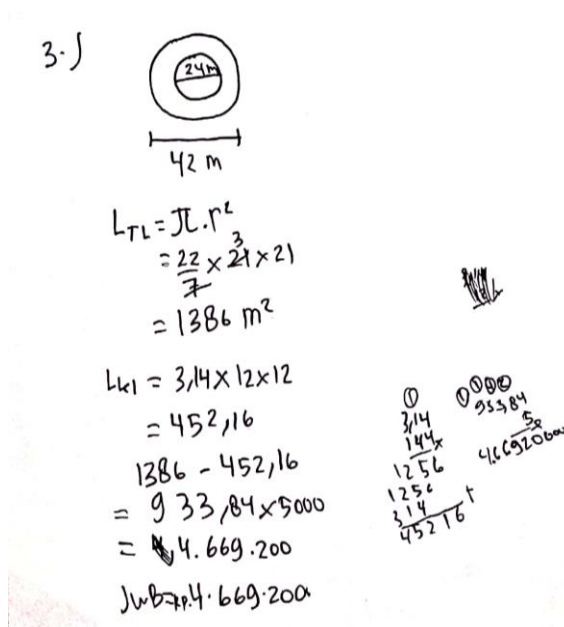 3.)
24m
42 m
L_TL = π.r²
= 22/7 × 21 3 × 21
= 1386 m²
L_kl = 3,14 × 12 × 12
= 452,16
1386 - 452,16
= 933,84 × 5000
= 4.669.200
JwB = Rp.4.669.200
1
3,14
144 ×
1256
1256
314 +
45216
933,84
5 ×